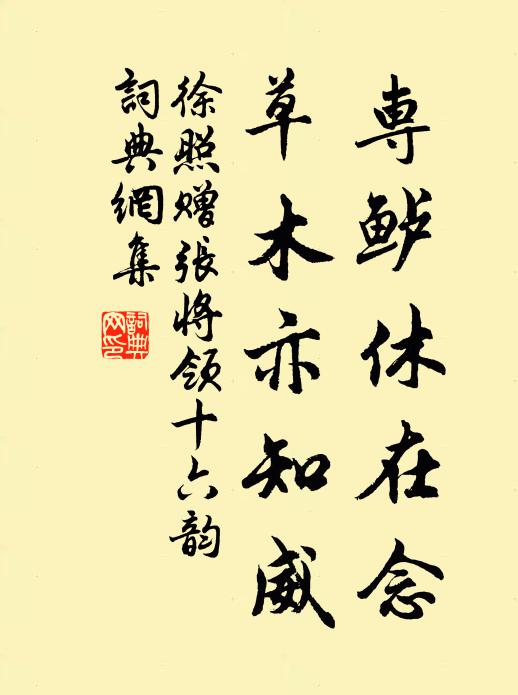 専鲈休在念
草木亦知威
徐照赠張将领十六韵
詞典網集
詞典网印